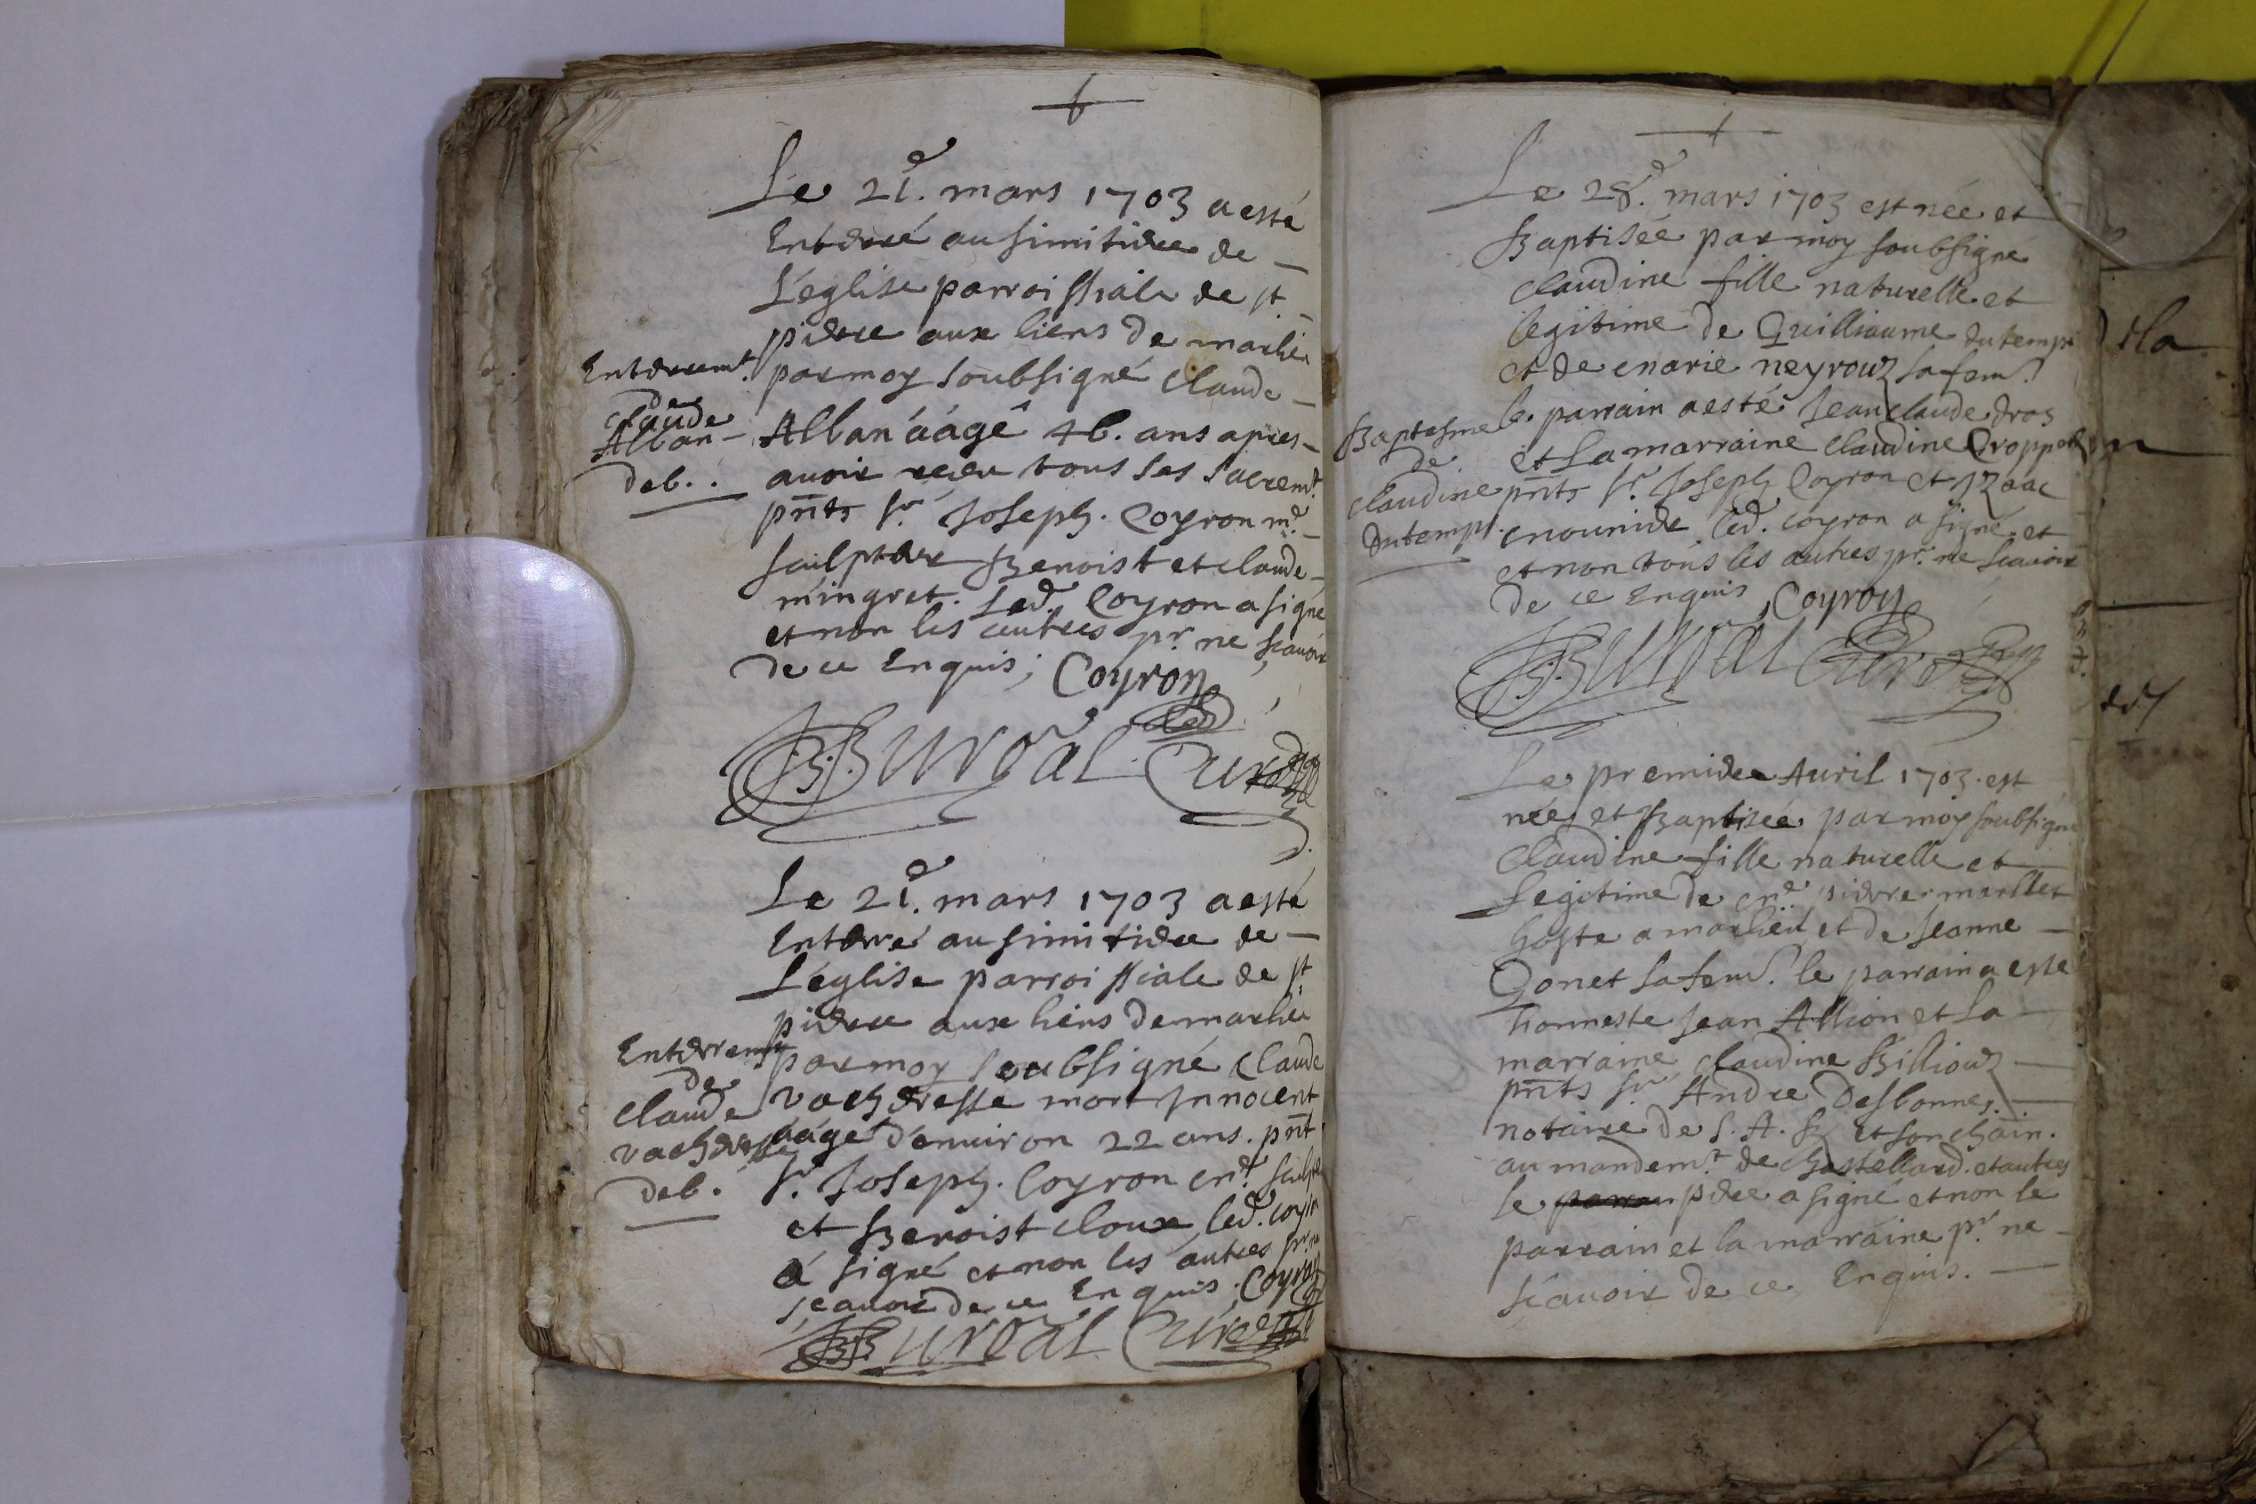 Le 21.e mars 1703 a esté
Enterré au simitiere de
L'église parroissiale de st
pierre aux liens de marlieu
par moy soubsigné Claude
Enterremt.
de
Claude
Alban
deb.
Alban áágé 46. ans apres
auoir receu tous les sacremt.
pñts sr. Joseph. Coyron md.
sculpteur Benoist et claude
mingret. Led. Coyron a signé
et non les autres pr. ne scauoir
de ce Enquis, Coyron
B. Buroal Curé
Le 21.e mars 1703 a esté
Enterré au simitiere de
L'église parroissiale de st
pierre aux liens de marlieu
par moy soubsigné Claude
Enterremt
de
Claude
vacheresse
deb.
vacheresse mort Innocent
áágé d'enuiron 22 ans. pñt
sr. Joseph. Coyron
et Benoist cloux, led. coyron
á signé et non les autres pr. ne
scauoir de ce Enquis. Coyron
B. Buroal Curé
Le 28.e mars 1703 est née et
Baptisée par moy soubsigne
claudine fille naturelle et
legitime de Guilliaume dutemps
et de marie neyrouz sa fem.
le parrain a esté Jean claude dros
Baptesme
de
claudine
dutemps.
et La marraine claudine
pñts sr. Joseph Coyron et Izaac
mounier led. coyron a signé. et
et non tous les autres pr. ne scauoir
de ce Enquis, Coyron
B. Buroal Curé
Le premier Auril 1703. est
née, et Baptisée par moy soubsigné
Claudine fille naturelle et
Legitime de pierre
hoste a marlieu et de Jeanne
Gonet sa fem. le parrain a esté
honneste Jean Allion et La
marraine claudine Billiouz
pñts sr. Andre Desbonnes
notaire de S. A. R. et son chãin.
au mandemt. de chastellard. et autres
le parrain pere a signé et non le
parrain et la marraine pr. ne
scauoir de ce, Enquis.